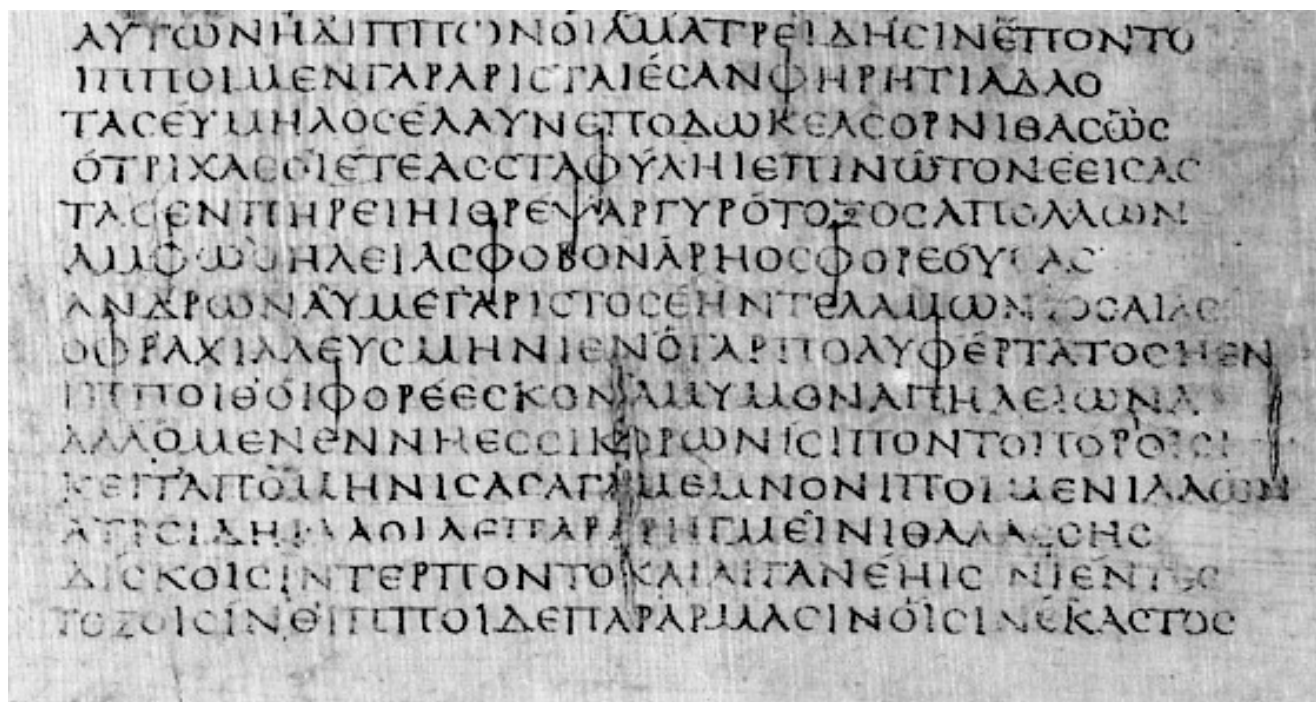 ΑΥΤΩΝΗΔΙΠΠΩΝΟΙΑΜΑΤΡΕΙΔΗϹΙΝΕΠΟΝΤΟ
ΙΠΠΟΙΜΕΝΓΑΡΑΡΙϹΤΑΙΕϹΑΝΦΗΡΗΤΙΑΔΑΟ
ΤΑϹΕΥΜΗΛΟϹΕΛΑΥΝΕΠΟΔΩΚΕΑϹΟΡΝΙΘΑϹΩϹ
ΟΤΡΙΧΑϹΟΙΕΤΕΑϹϹΤΑΦΥΛΗΙΕΠΙΝΩΤΟΝΕΕΙϹΑϹ
ΤΑϹΕΝΠΗΡΕΙΗΙΘΡΕΨΑΡΓΥΡΟΤΟΞΟϹΑΠΟΛΛΩΝ
ΑΜΦΩΘΗΛΕΙΑϹΦΟΒΟΝΑΡΗΟϹΦΟΡΕΟΥϹΑϹ
ΑΝΔΡΩΝΑΥΜΕΓΑΡΙϹΤΟϹΕΗΝΤΕΛΑΜΩΝΙΟϹΑΙΑϹ
ΟΦΡΑΧΙΛΛΕΥϹΜΗΝΙΕΝΟΓΑΡΠΟΛΥΦΕΡΤΑΤΟϹΗΕΝ
ΙΠΠΟΙΘΟΙΦΟΡΕΕϹΚΟΝΑΜΥΜΟΝΑΠΗΛΕΙΩΝΑ
ΑΛΛΟΜΕΝΕΝΝΗΕϹϹΙΚΟΡΩΝΙϹΙΠΟΝΤΟΠΟΡΟΙϹΙ
ΚΕΙΤΑΠΟΜΗΝΙϹΑϹΑΓΑΜΕΜΝΟΝΙΠΟΙΜΕΝΙΛΑΩΝ
ΑΤΡΕΙΔΗΙΛΑΟΙΔΕΠΑΡΑΡΗΓΜΕΙΝΙΘΑΛΑϹϹΗϹ
ΔΙϹΚΟΙϹΙΝΤΕΡΠΟΝΤΟΚΑΙΑΙΓΑΝΕΗΙϹΙΝΙΕΝΤΕϹ
ΤΟΞΟΙϹΙΝΘΙΠΠΟΙΔΕΠΑΡΑΡΜΑϹΙΝΟΙϹΙΝΕΚΑϹΤΟϹ